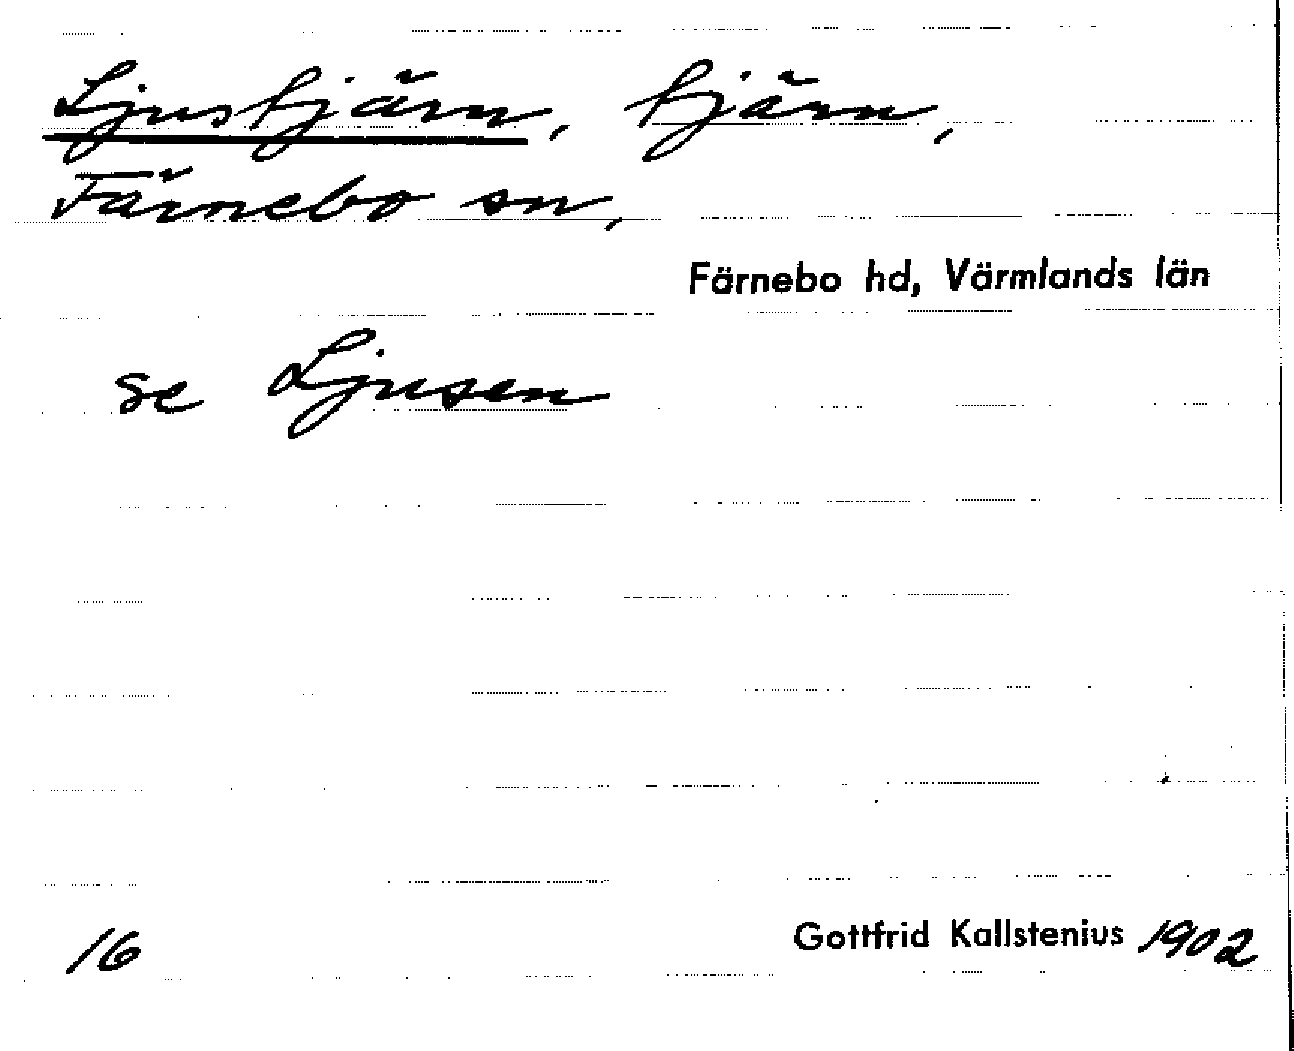 Ljustjärn, tjärn,
Färnebo sn,
Färnebo hd, Värmlands län
se Ljusen
16
Gottfrid Kallstenius 1902